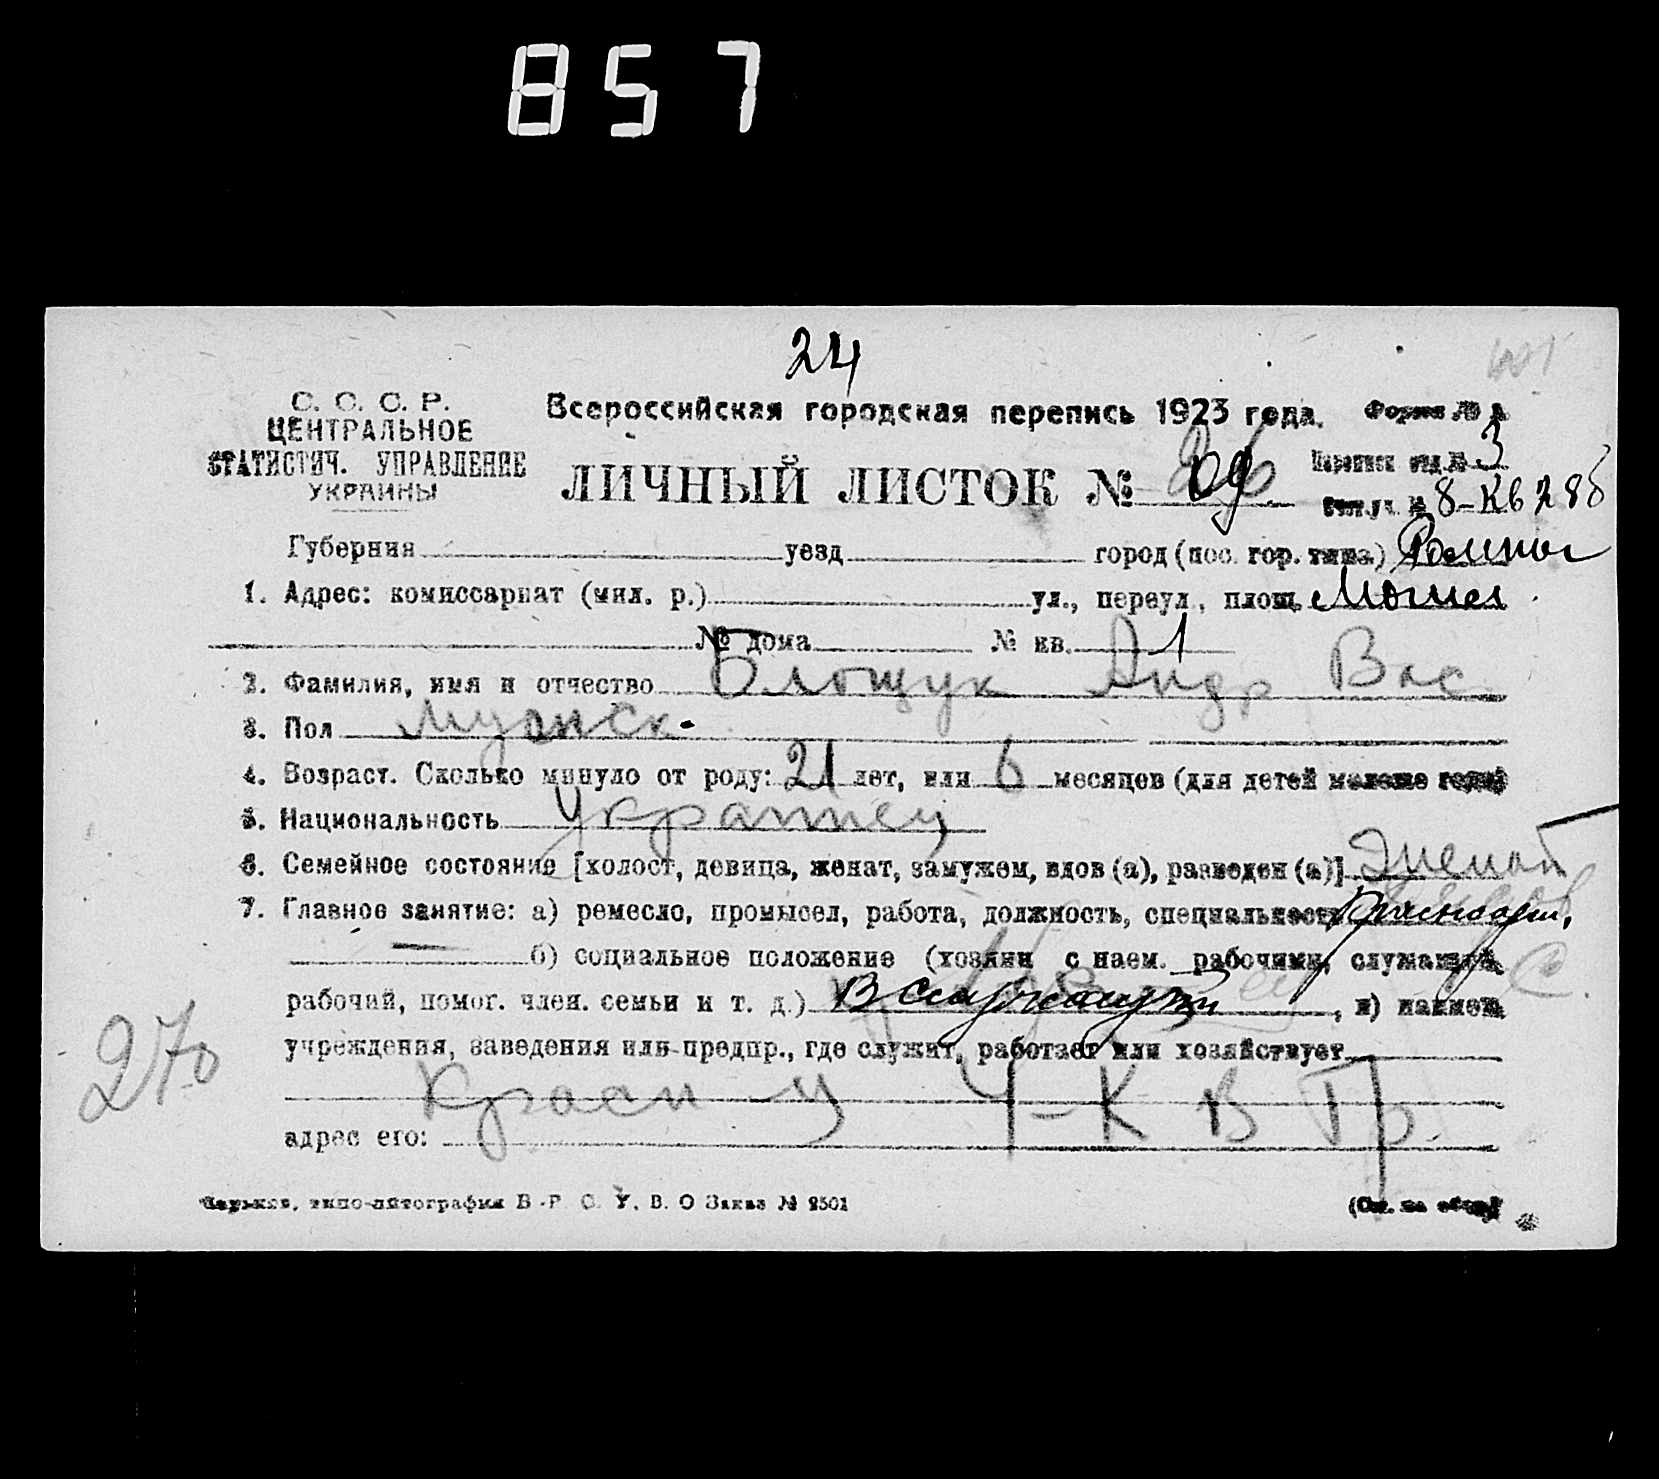 857
24
С. С. С. Р.
ЦЕНТРАЛЬНОЕ
СТАТИСТИЧ. УПРАВЛЕНИЕ
УКРАИНЫ
Всероссийская городская перепись 1923 года. Форма №
ЛИЧНЫЙ ЛИСТОК №
Переписн отд. № 3
Счетн. уч. № 8-Кв 28б
Губерния уезд город (пос. гор. типа) Ромны
1. Адрес: комиссариат (мил. р.) ул., переул., площ.
№ дома № кв. 1
2. Фамилия, имя и отчество Блощук Андр Вас
3. Пол мужск.
4. Возраст. Сколько минуло от роду: 21 лет, или 6 месяцев (для детей моложе года)
5. Национальность Украинец
6. Семейное состояние [холост, девица, женат, замужем, вдов (а), разведен (а)] женат
7. Главное занятие: а) ремесло, промысел, работа, должность, специальность
б) социальное положение (хозяин с наем. рабочими, служащий,
рабочий, помог. член. семьи и т. д.) Военнослужащ, в) наимен.
учреждения, заведения или предпр., где служит, работает или хозяйствует
адрес его:
270
Харьков, типо-литография В.-Р. С. У. В. О Заказ № 2501
(См. на обор.)